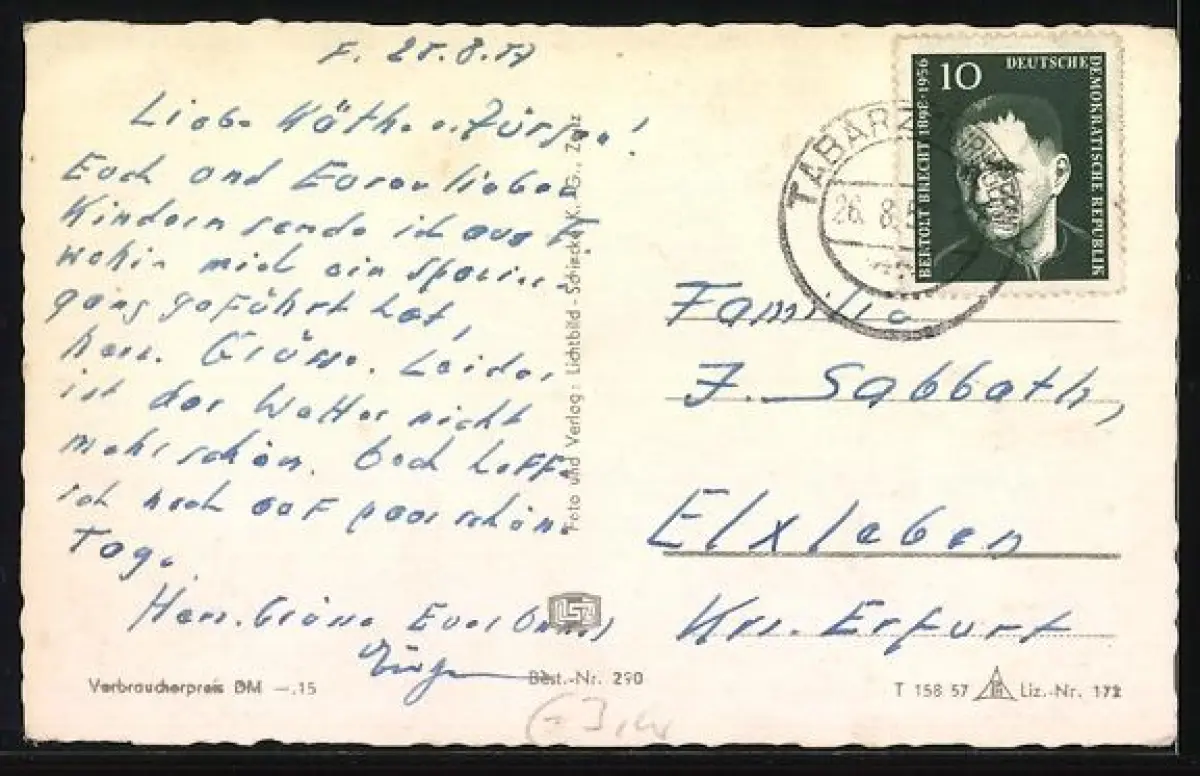 F. 25.8.57
Liebe Käthe u. Jürgen!
Euch und Euren lieben
Kindern sende ich aus
wohin mich ein Spazier-
gang geführt hat,
herz. Grüsse. Leider
ist das Wetter nicht
mehr schön. Doch hoffe
ich noch auf paar schöne
Tage.
Herz. Grüsse Euer
Foto und Verlag: Lichtbild-Schincke K.G., Zeitz
Verbraucherpreis DM —.15
Best.-Nr. 290
10
DEUTSCHE
DEMOKRATISCHE REPUBLIK
BERTOLT BRECHT 1898·1956
TABARZ
26. 8. 5
Familie
J. Sabbath,
Elxleben
Krs. Erfurt
T 158 57
Liz.-Nr. 172